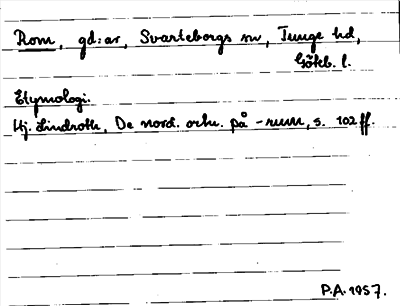 Rom, gd:ar, Svarteborgs sn, Tunge hd,
Göteb. l.
Etymologi.
Hj. Lindroth, De nord. ortn. på -rum, s. 102 ff.
P.A. 1957.